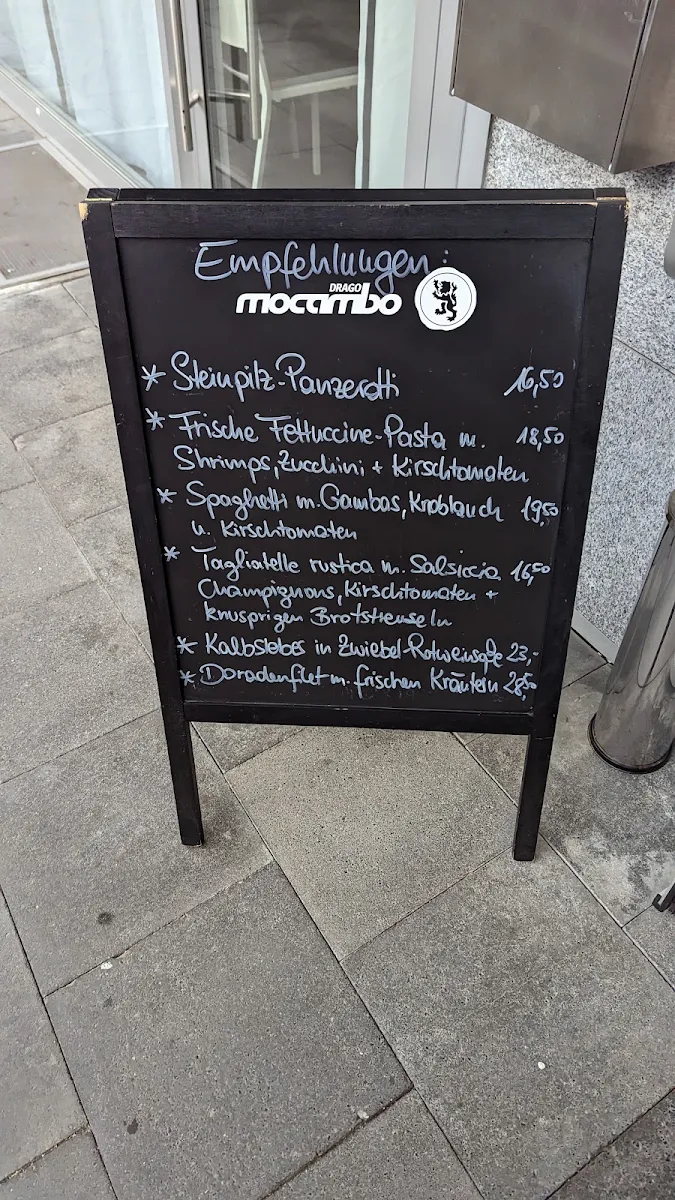 Empfehlungen:
DRAGO
mocambo
* Steinpilz-Panzerotti 16,50
* Frische Fettuccine-Pasta m. 18,50
Shrimps, Zucchini + Kirschtomaten
* Spaghetti m. Gambas, Knoblauch 19,50
u. Kirschtomaten
* Tagliatelle rustica m. Salsiccia 16,50
Champignons, Kirschtomaten +
knusprigen Brotstreuseln
* Kalbsleber in Zwiebel-Rotweinsoße 23,-
* Doradenfilet m. frischen Kräutern 28,50